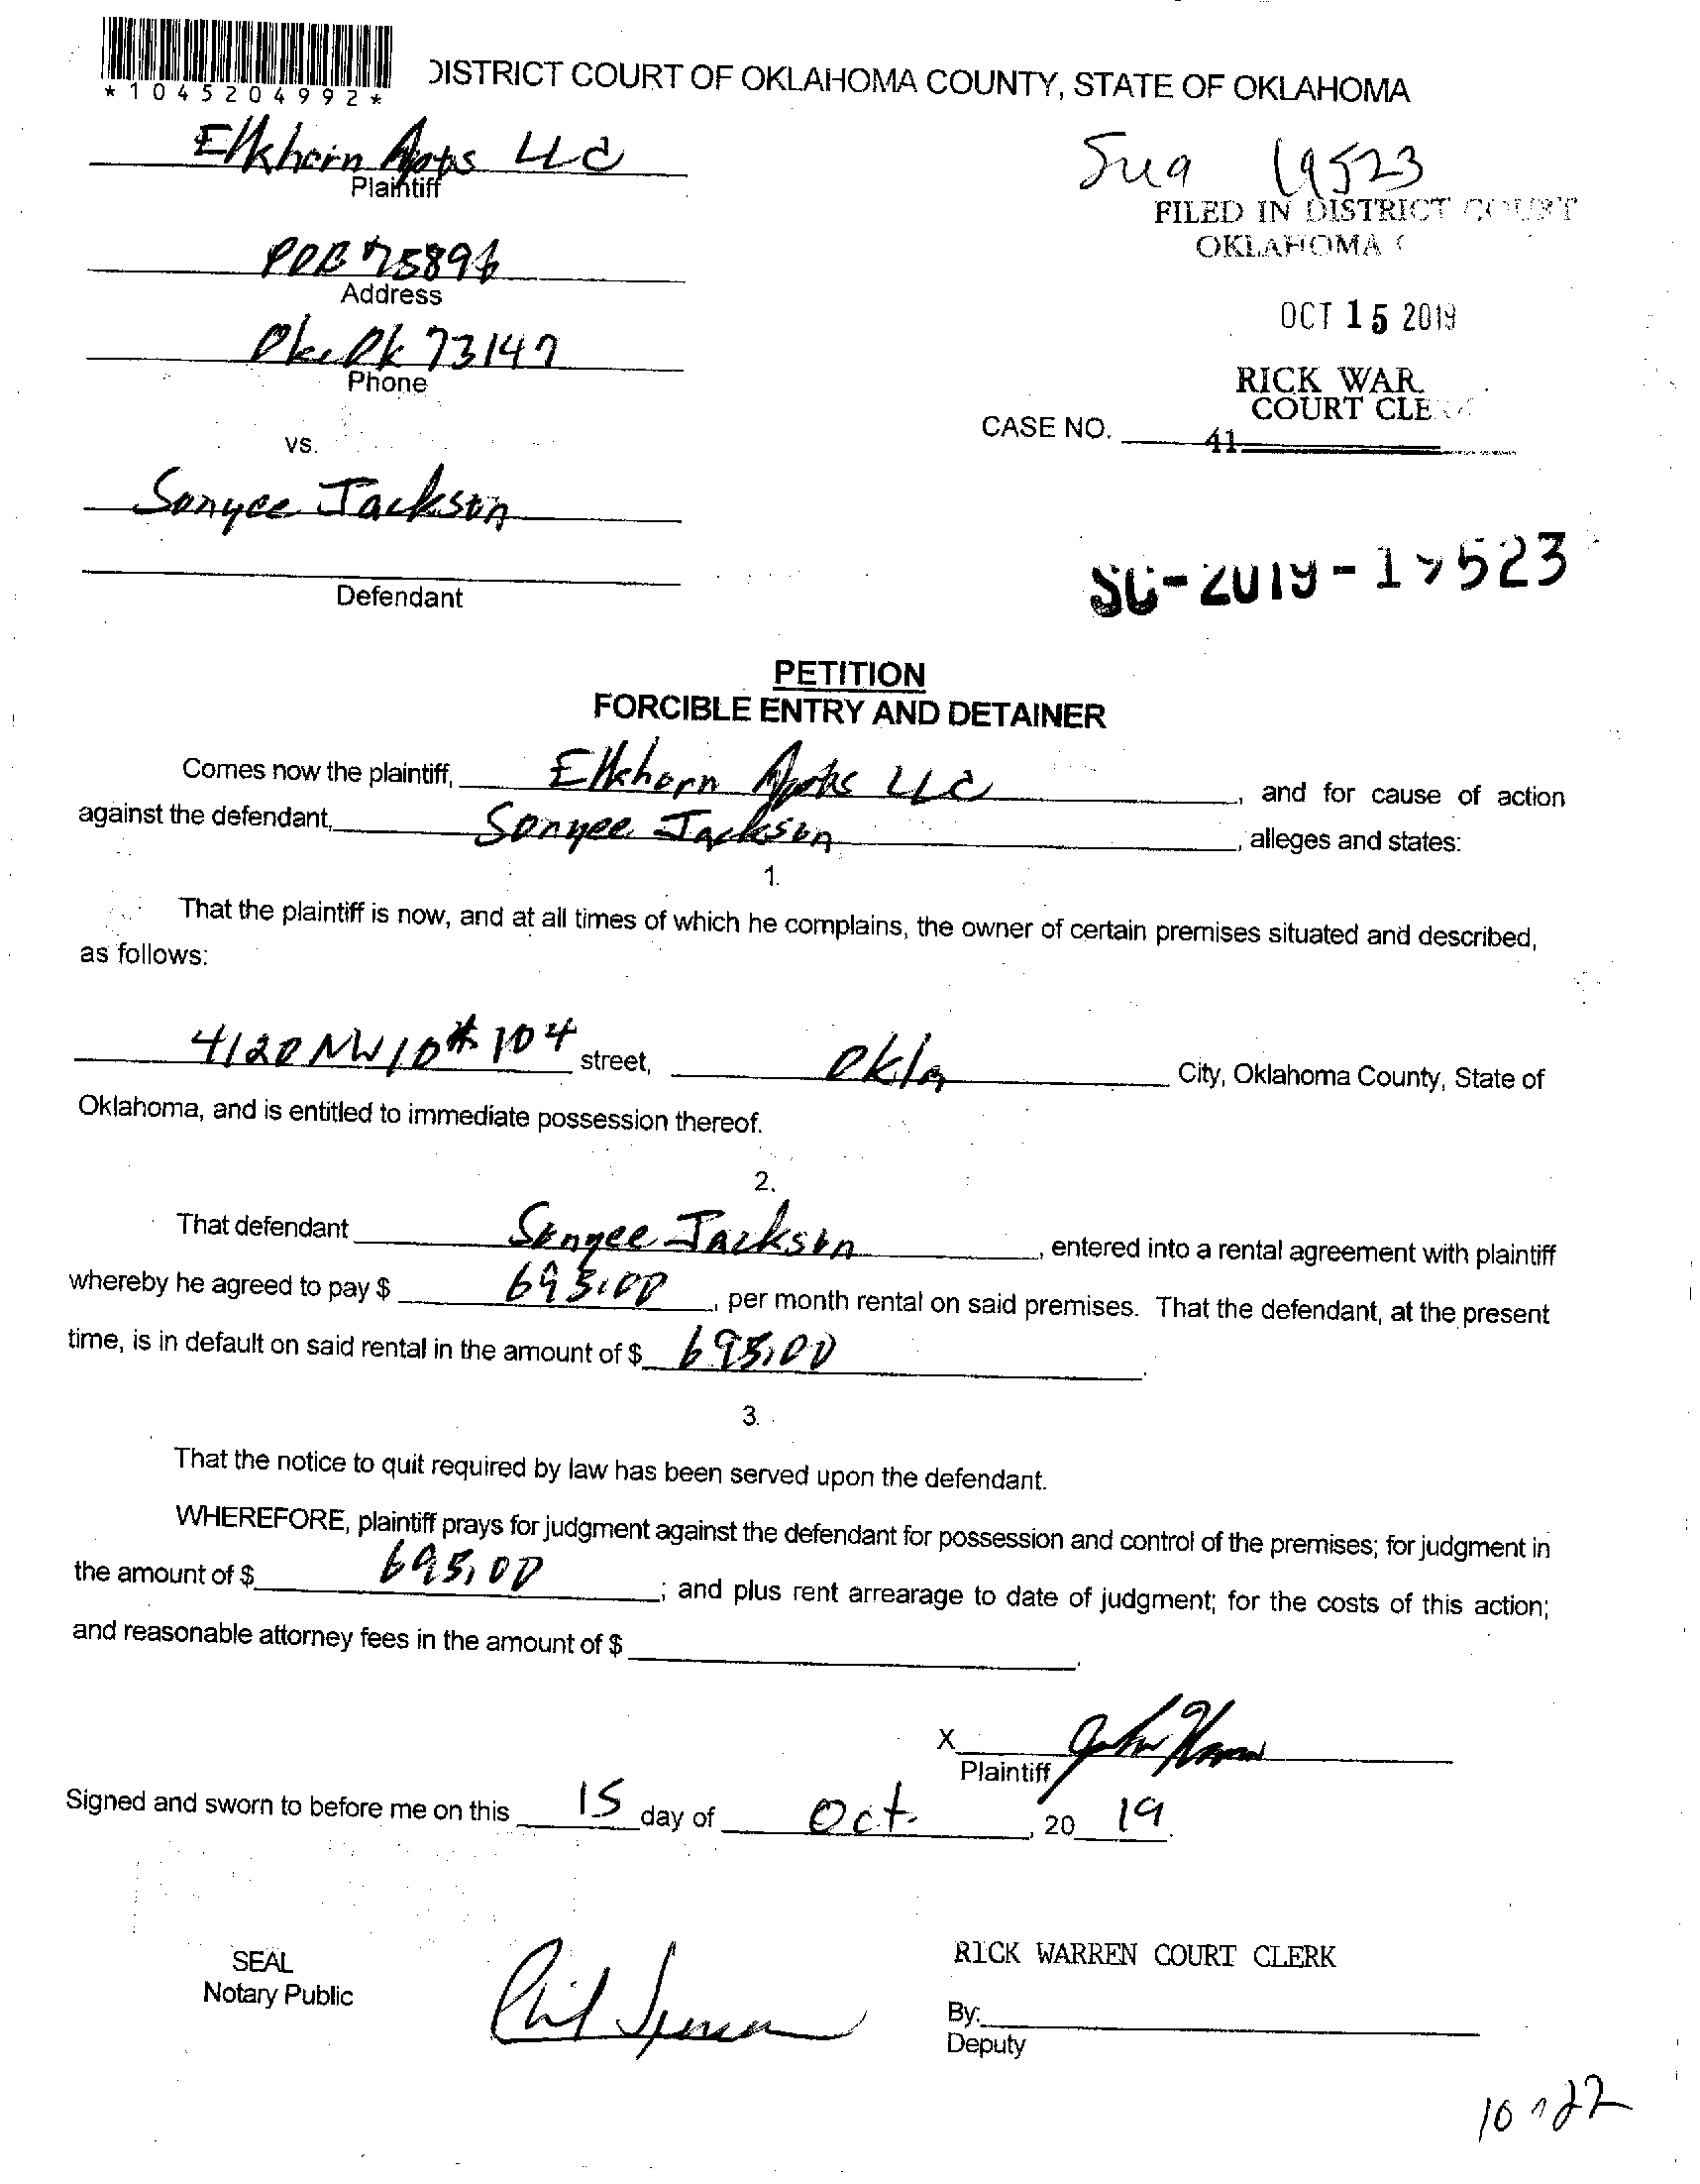 *1045204992*
DISTRICT COURT OF OKLAHOMA COUNTY, STATE OF OKLAHOMA
Elkhorn Apts LLC
Plaintiff
POB 75896
Address
Okc Ok 73147
Phone
vs.
Sonyee Jackson
Defendant
19523
FILED IN DISTRICT COURT
OKLAHOMA C
OCT 15 2019
RICK WAR
COURT CLERK
CASE NO.
41
SC-2019-19523
PETITION
FORCIBLE ENTRY AND DETAINER
Comes now the plaintiff, Elkhorn Apts LLC, and for cause of action
against the defendant, Sonyee Jackson, alleges and states:
1.
That the plaintiff is now, and at all times of which he complains, the owner of certain premises situated and described,
as follows:
4120 NW 10 # 104 street, Okla City, Oklahoma County, State of
Oklahoma, and is entitled to immediate possession thereof.
2.
That defendant Sonyee Jackson, entered into a rental agreement with plaintiff
whereby he agreed to pay $ 695.00, per month rental on said premises. That the defendant, at the present
time, is in default on said rental in the amount of $ 695.00.
3.
That the notice to quit required by law has been served upon the defendant.
WHEREFORE, plaintiff prays for judgment against the defendant for possession and control of the premises; for judgment in
the amount of $ 695.00; and plus rent arrearage to date of judgment; for the costs of this action;
and reasonable attorney fees in the amount of $
X
Plaintiff
Signed and sworn to before me on this 15 day of Oct., 20 19.
SEAL
Notary Public
RICK WARREN COURT CLERK
By:
Deputy